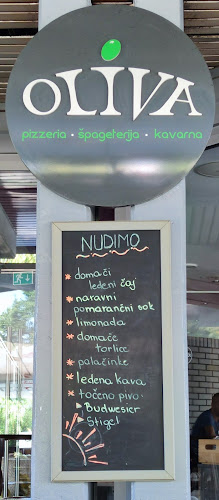 OLIVA
pizzeria • špageterija • kavarna
NUDIMO
* domači
ledeni čaj
* naravni
pomarančni sok
* limonada
* domače
tortice
* palačinke
* ledena kava
* točeno pivo:
► Budweiser
► Stigel